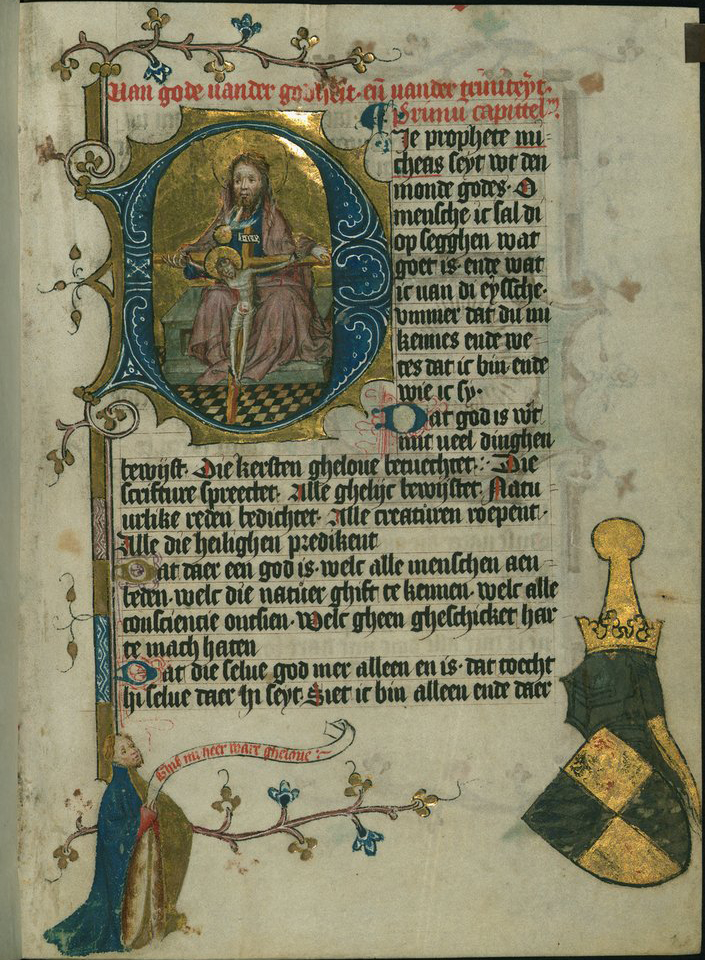 Uan gode uander godheit. eñ uander triniteyt.
Primū capittel
Die prophete mi-
cheas seyt wt den
monde godes. O
mensche ic sal di
op segghen wat
goet is. ende wat
ic uan di eyssche.
ummer dat du mi
kennes ende we
tes dat ic bin ende
wie ic sy.
Dat god is wt
mit ueel dinghen
bewijst. Die kersten gheloue betuechtet. Die
scrifture spreectet. Alle ghelijc bewijstet. Natu
urlike reden bedichtet. Alle creaturen roepent.
Alle die heilighen predikent
Dat daer een god is. welc alle menschen aen
beden. welc die natuer ghift te kennen. welc alle
consciencie ontsien. Welc gheen gheschicket har
te mach haten
Dat die selue god mer alleen en is. dat toecht
hi selue daer hi seyt. Siet ic bin alleen ende daer
mi heer ware gheloue